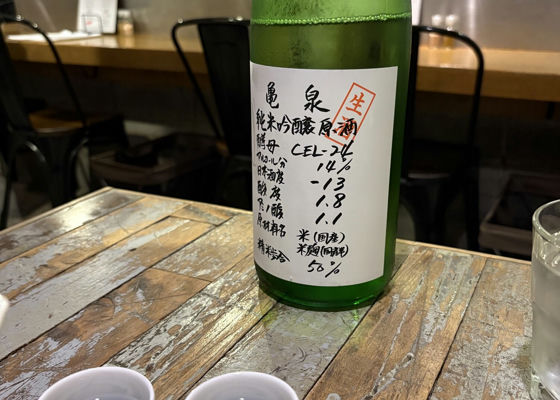 亀泉
生酒
純米吟醸原酒
酵母 CEL-24
アルコール分 14%
日本酒度 -13
酸度 1.8
アミノ酸 1.1
原材料名 米(国産)
米麹(国産米)
精米歩合 50%